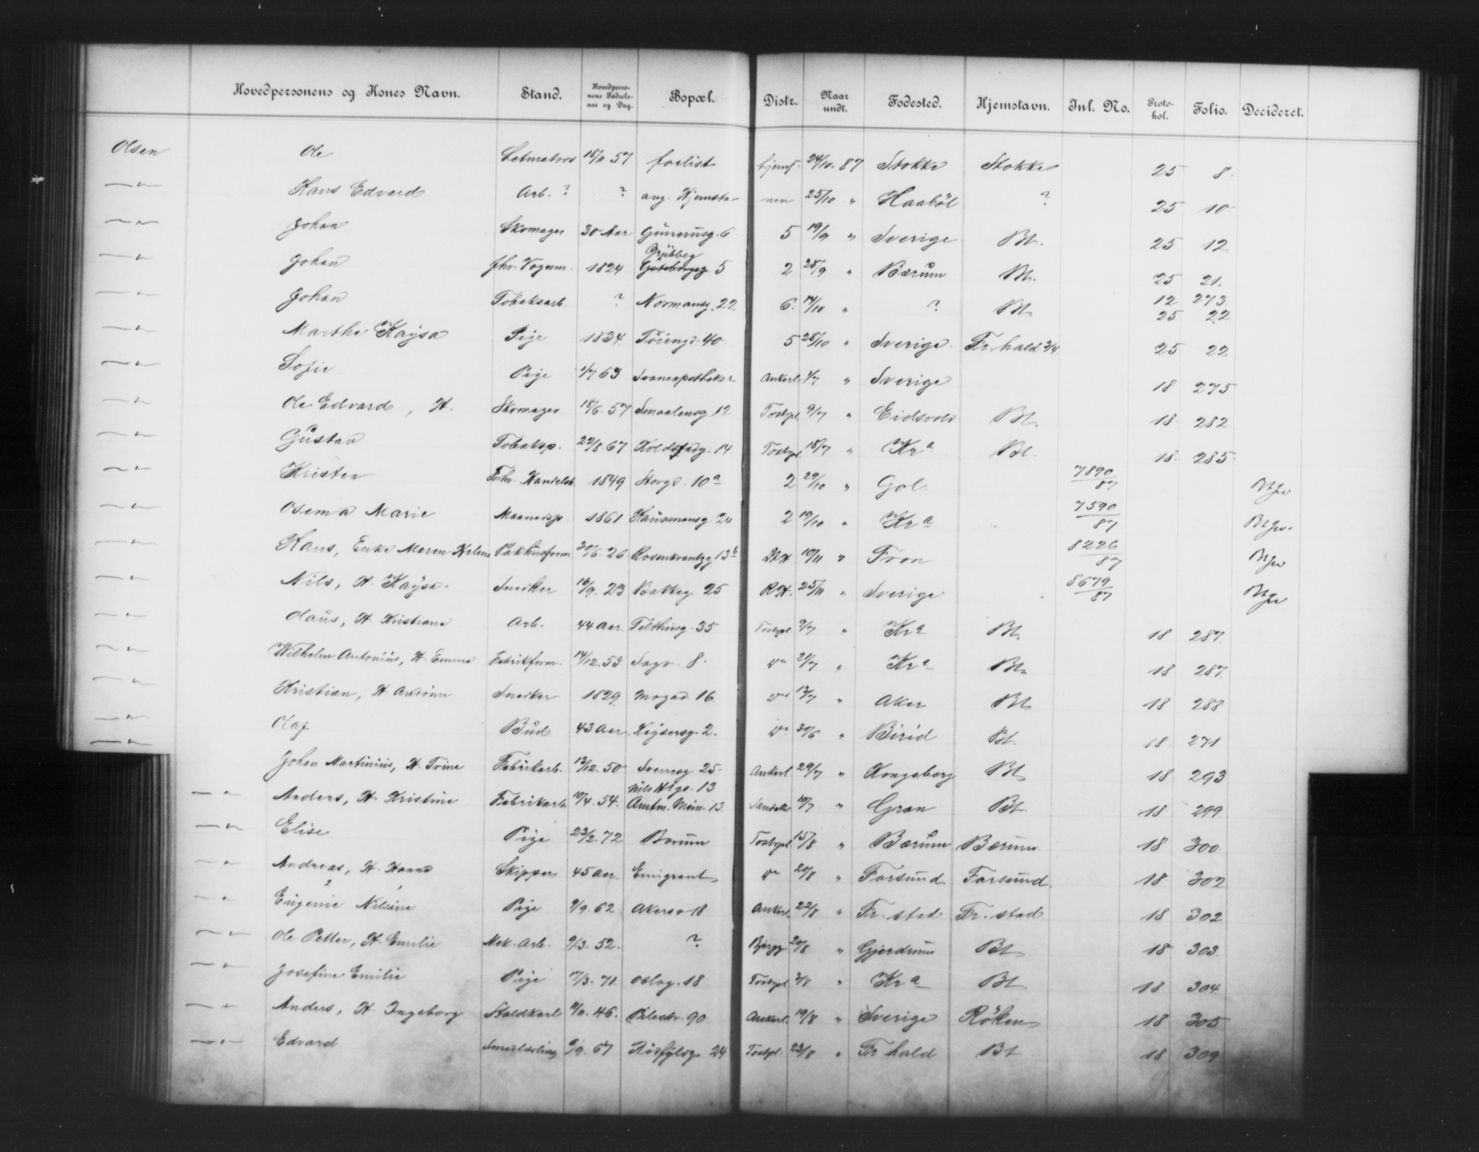 Hovedpersonens og Kones Navn. Stand. Hovedperso-nens Fødsels-aar og Dag. Bopæl. Distr. Naar undt. Fødested. Hjemstavn. Inl. No. Proto-kol. Folio. Decideret.
Olsen Ole Letmatros 57 forlist 24/10 87 Stokke Stokke 25 8
Hans Edvard Arb. ? ? ang. Hjemsta- nen 25/10 " Haabøl ? 25 10
Johan Skomager 30 Aar Gunerusg. 6 5 19/9 " Sverige Bt. 25 12
Johan fhv. Vogum. 1824 Grübbeg 5 2 28/9 " Bærum Bt. 25 21.
Johan Tobaksarb. ? Normansg. 22 6. 14/10 " ? Bt. 12 273 25 22
Marthe Kaysa Pige 1834 Tøieng. 40 5 25/10 " Sverige Fr.hald 25 22.
Sofie Pige 63 Svaneapotheker Ankerl. " Sverige 18 275
Ole Edvard, H. Skomager 57 Smaalensg. 12 Tostrpl 9/7 " Eidsvold Bt. 18 282
Gustav Tobaksp. 22/8 67 14 Tostrpl 18/7 " Kra Bt. 18 285
Kristen Forh. Handelsb. 1849 Storgd. 10a 2 29/10 " Gol. 7890/87
Osema Marie 1861 Hausmansg 20 2 19/10 " Kra 7590/87
Hans, Enke Maren Helene Pakhusform. 26 Rosenkrantzg 13b 10/11 " Fron 8226/87
Nils, H. Kaysa. Snedker 16/9. 23 Bakkeg 25 R.H. 25/11 " Sverige 8679/87
Claus, H. Kristiane Arb. 44 Aar Telthusg. 35 Tostrpl 9/7 " Kra Bt. 18 287.
Wilhelm Antonius, H. Emma Fabrikform. 14/12. 53 Sagv. 8. do 21/7 " Kra Bt. 18 287.
Kristian, H. Andrine Snedker 1829 Mogad. 16 do 13/7 " Aker Bt. 18 288
Olaf Bud 43 Aar Keysersg. 2. do 30/6 " Birid Bt. 18 271
Johan Martinius, H. Trine Fabrikarb. 13/12. 50 Svenseg 25. Ankerl 29/7 " Kongsberg Bt 18 293
Anders, H. Kristine Fabrikarb 10/4. 54. Nils H.gs. 13 Amtm. Mein. 13 10/7 " Gran Bt. 18 299.
Elise Pige 23/2. 72 Bærum Tostrpl 15/8 " Bærum Bærum 18 300
Andreas, H. Hanna Skipper 45 Aar Emigrant do 20/8 " Farsund Farsund 18 302
Eugenie Nilsine Pige 9/9. 62 Akersv 18 Ankerl. 22/8 " Fr. stad Fr. stad 18 302
Ole Petter, H. Emilie Mek. Arb. 9/3. 52. ? 20/8 " Gjerdrum Bt 18 303
Josefine Emilie Pige 17/3. 71 Oslog. 18 Tostrpl 3/8 " Kra Bt 18 304
Anders, H. Ingeborg Staldkarl 9/11. 46. Pilestr. 90 Ankerl. 19/8 " Sverige Røken 18 305
Edvard Smedlærling 9/9. 67 24 Tostpl. 23/8 " Fr hald Bt 18 309